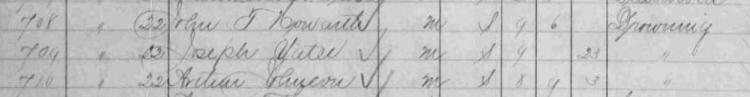 708 " 22 John T Howarth √ m S 9 6 Drowning
709 " 23 Joseph Yates √ m S 9 23 "
710 " 22 Arthur Johnson √ m S 8 9 3 "